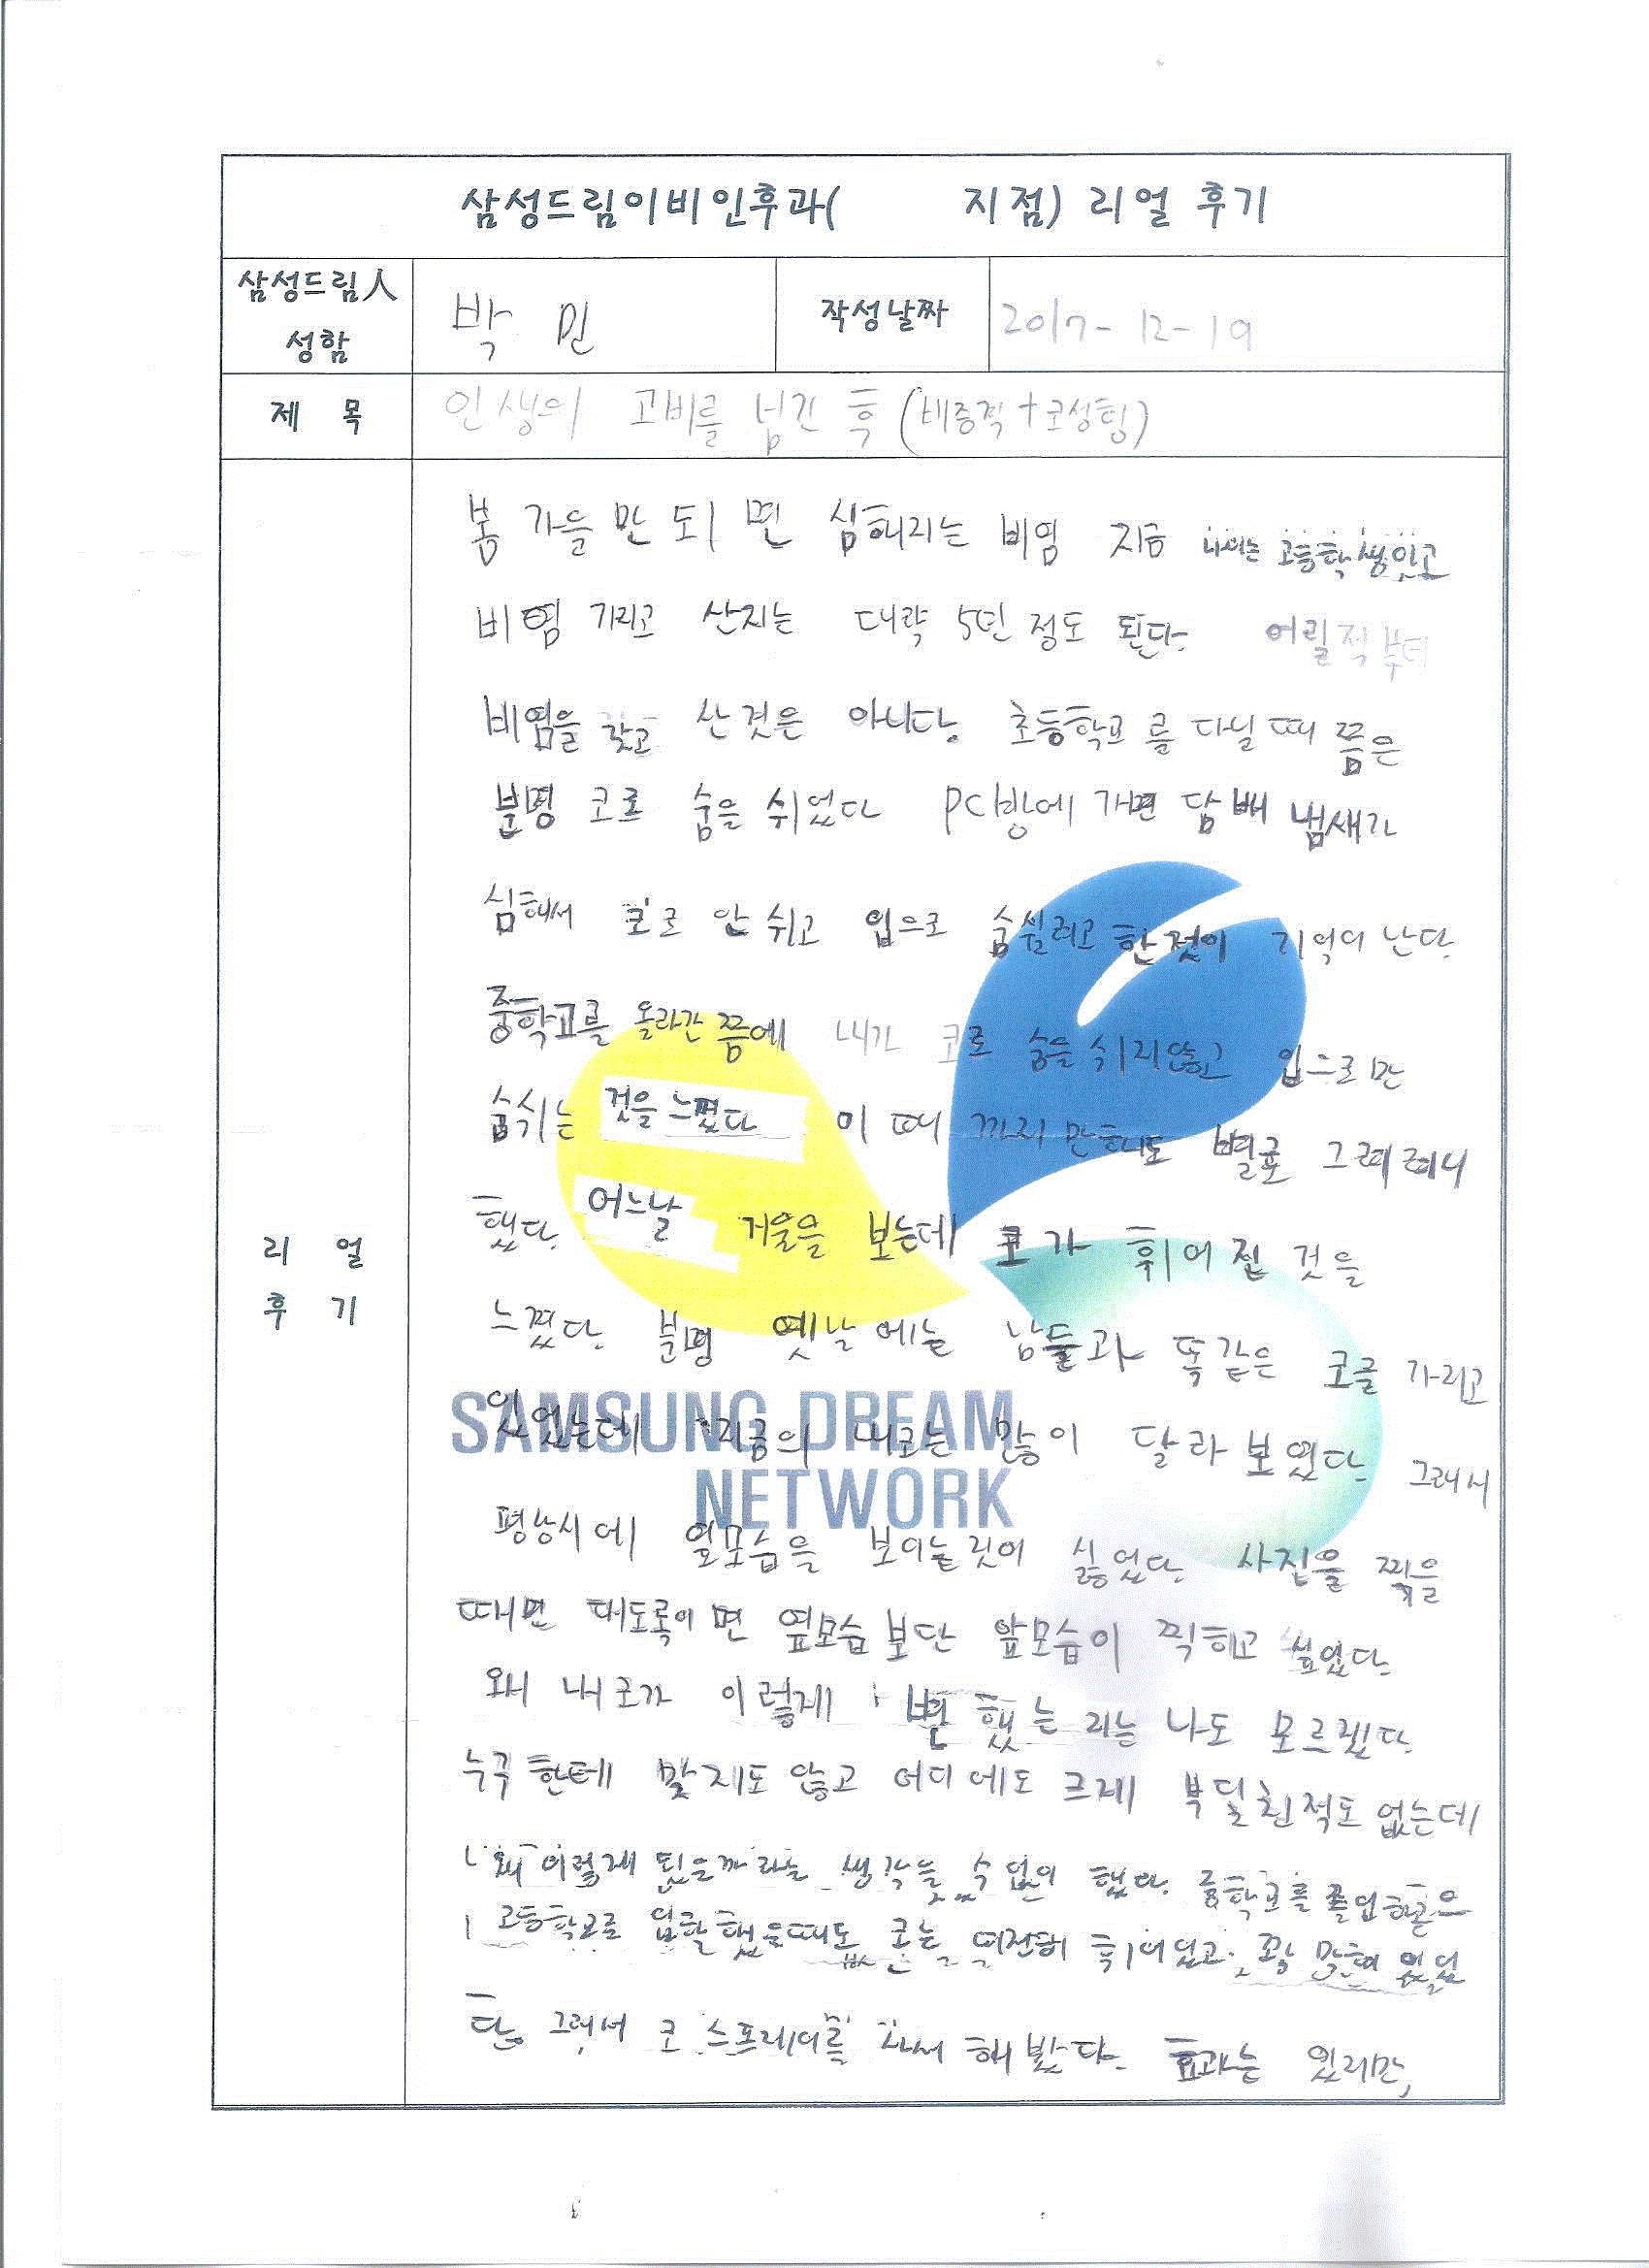 삼성드림이비인후과(      지점) 리얼 후기
삼성드림人 성함
박 민
작성날짜
2017-12-19
제 목
인생의 고비를 넘긴 후 (비중격+코성형)
리 얼
후 기
봄 가을 만 되 면 심해지는 비염 지금 나이는 고등학생이고
비염 가지고 산지는 대략 5년 정도 된다. 어릴적부터
비염을 갖고 산것은 아니다. 초등학교 를 다닐 때 쯤은
분명 코로 숨을 쉬었다 PC방에 가면 담배 냄새가
심해서 코로 안 쉬고 입으로 숨쉴려고 한적이 기억이 난다.
중학교를 올라간 쯤에 내가 코로 숨을 쉬지않고 입으로만
숨쉬는 것을 느꼈다 이 때 까지 만해도 별로 그려려니
했다. 어느날 거울을 보는데 코가 휘어진 것을
느꼈다. 분명 옛날에는 남들과 똑같은 코를 가지고
있었는데 지금의 내코는 많이 달라 보였다. 그래서
평상시에 옆모습을 보이는것이 싫었다. 사진을 찍을
때면 되도록이면 옆모습 보단 앞모습이 찍히고 싶었다.
왜 내 코가 이렇게 변했는 지는 나도 모르겠다.
누구한테 맞지도 않고 어디에도 크게 부딪친적도 없는데
왜 이렇게 됬을까 라는 생각을 수없이 했다. 중학교를 졸업하고
고등학교로 입학했을때도 코는 여전히 휘어있고, 꽉 막혀 있었
다. 그래서 코 스프레이를 사서 해봤다. 효과는 있지만,